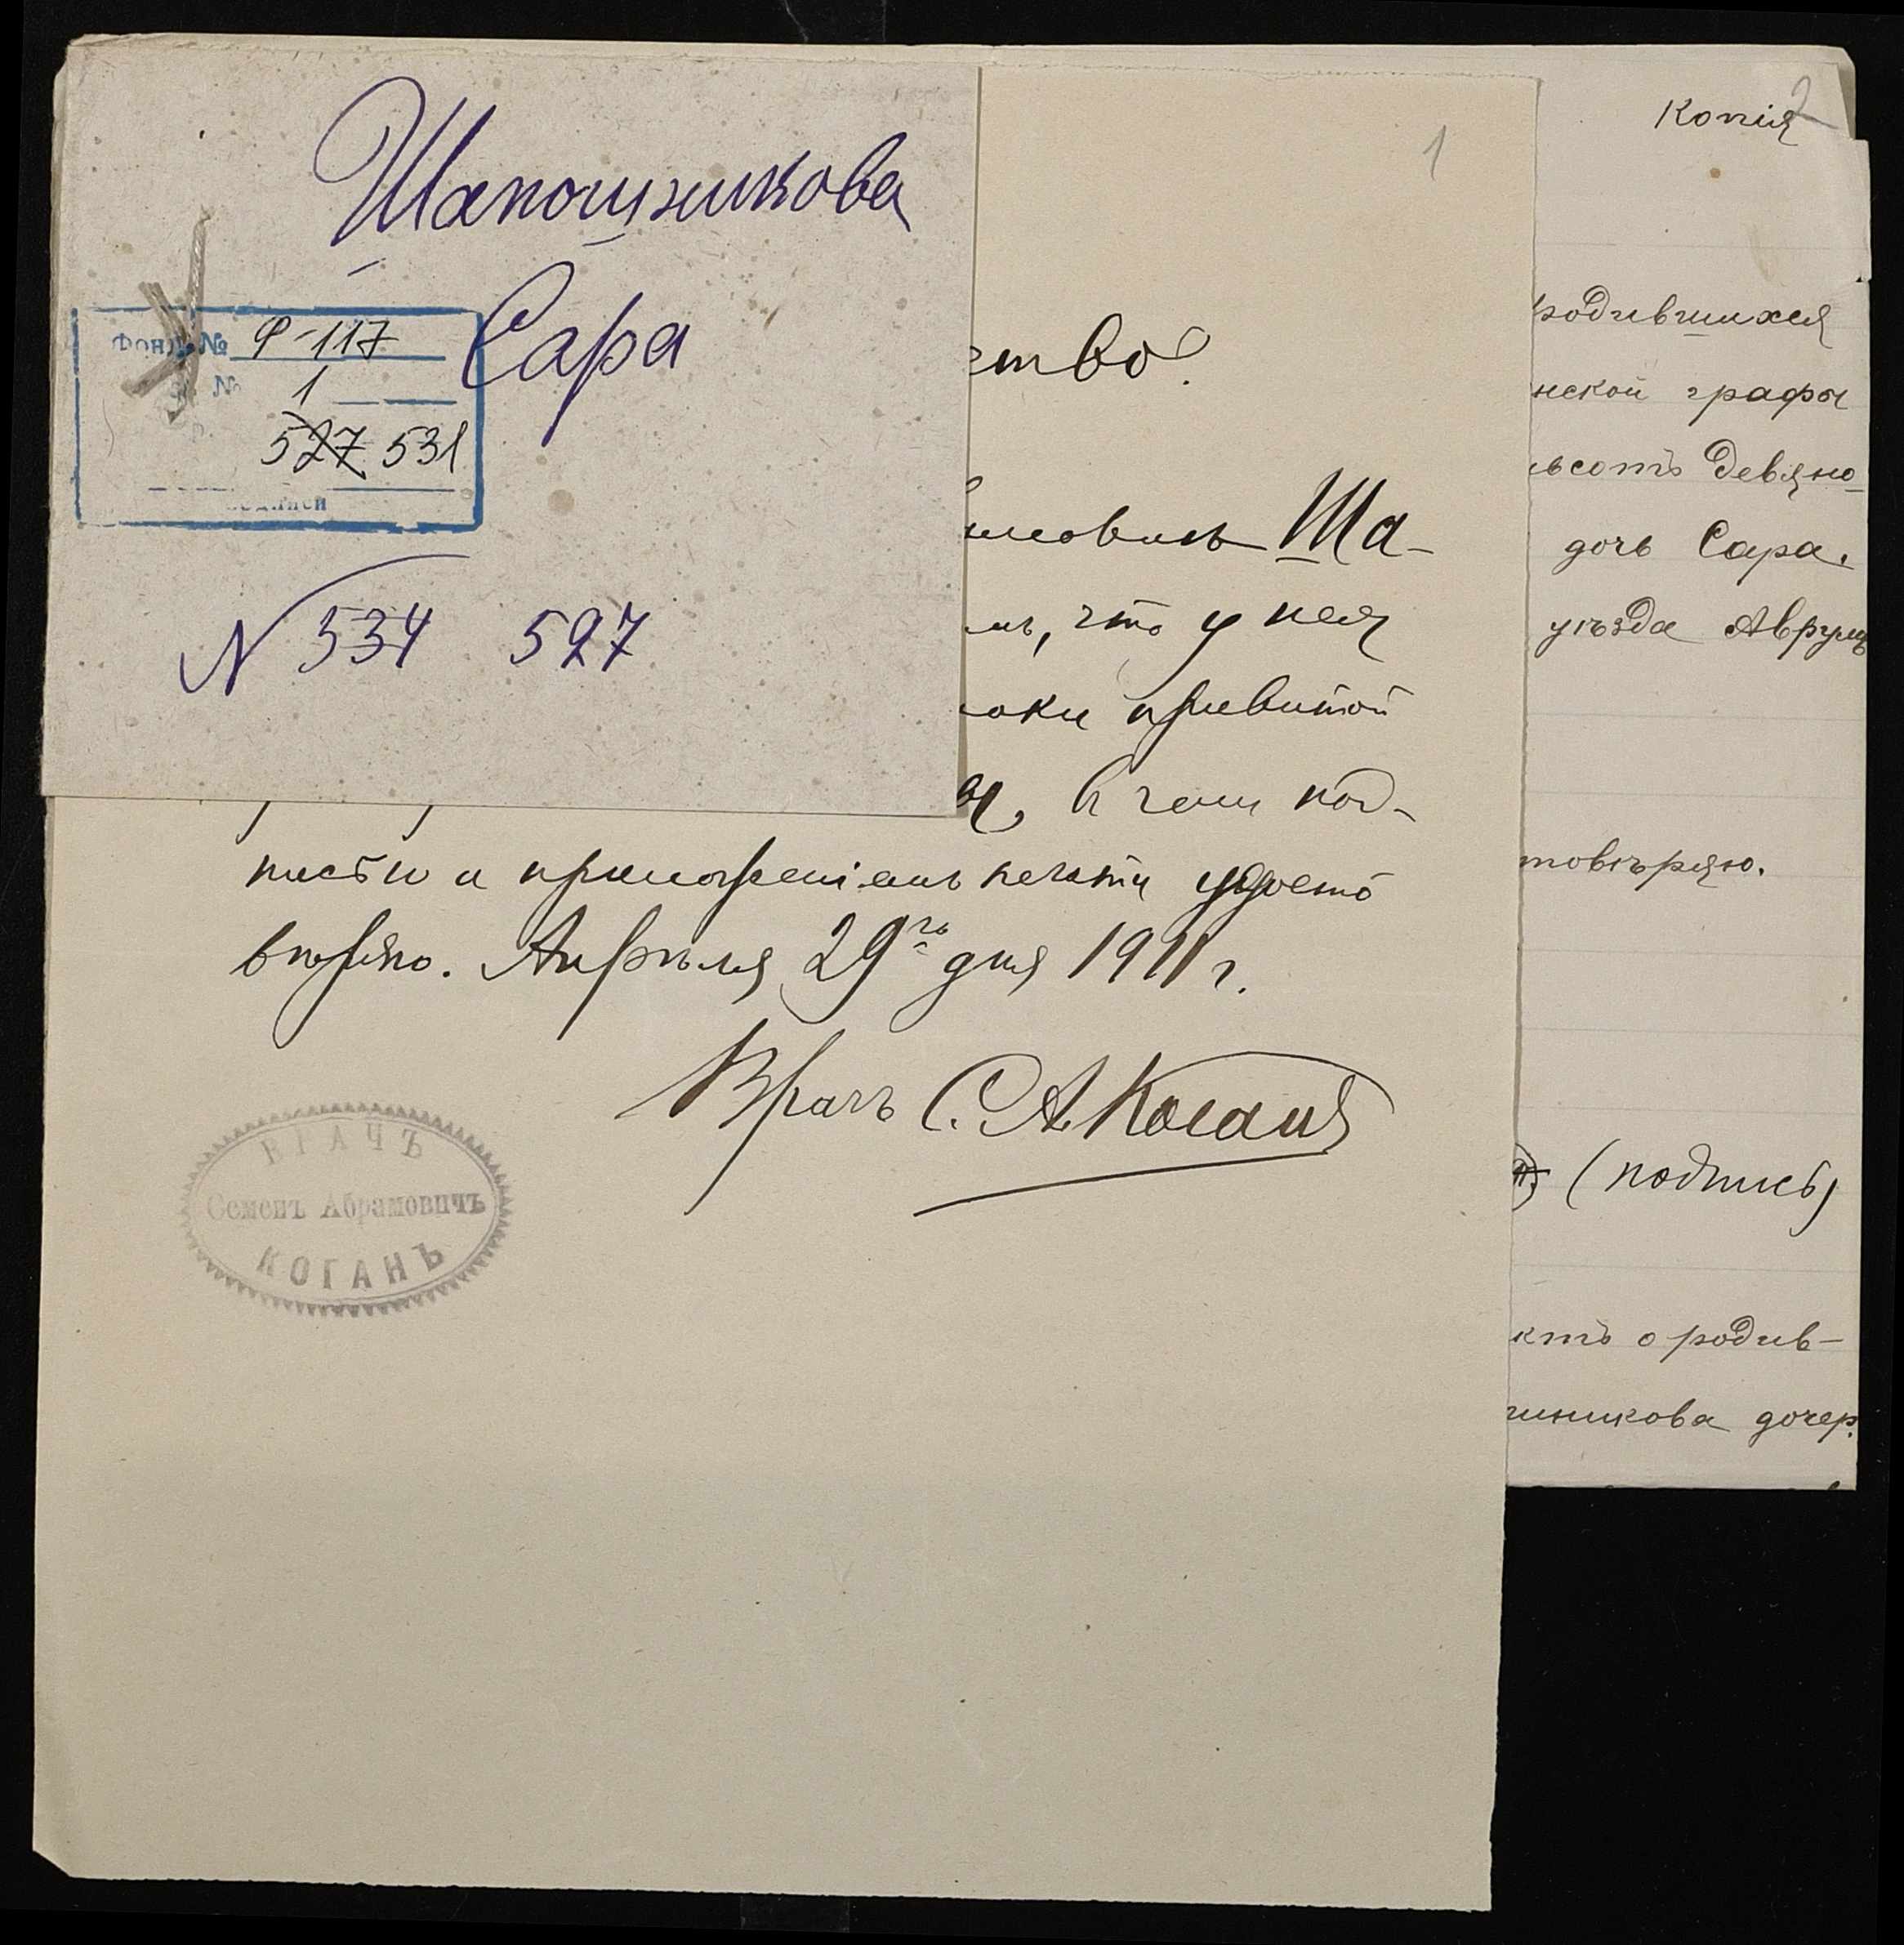 Шапошникова
Сара
Фонд № Ф-117
№ 1
527 531
N 534 527
1
ство.
Ша-
что у нея
привитой
въ чемъ под-
писью и приложеніемъ печати удосто
веряю. Апреля 29го дня 1911 г.
Врачъ С. А. Коганъ
ВРАЧЪ
Семенъ Абрамовичъ
КОГАНЪ
2
Копія
родившихся
нской графы
ьсотъ девяно-
дочь Сара.
уѣзда Аврумъ
товѣряю.
(подпись)
ктъ о родив-
шникова дочер.